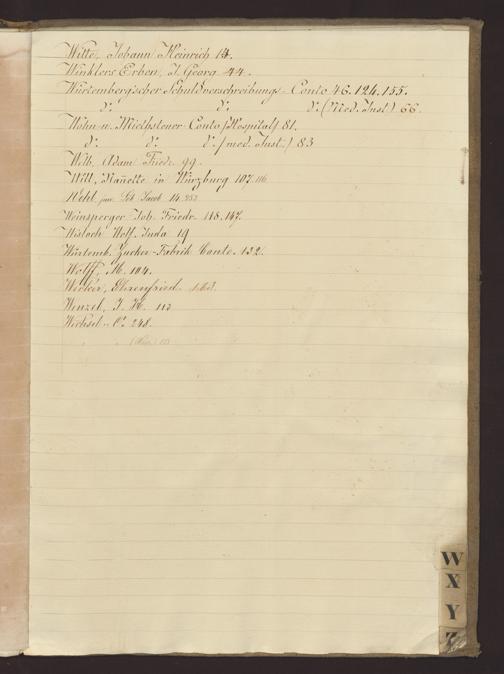 Witte, Johann Heinrich 14.
Winklers Erben, J. Georg 44.
Würtemberg'scher Schuldverschreibungs-Conto 46. 124. 155.
d: d: d: (Med. Inst.) 66.
Wohn u. Miethsteuer-Conto (Hospital) 81.
d: d: d: (med. Inst.) 83
Weib, Adam Friedr. 99.
Will, Nan̄ette in Würzburg 107. 116
Wehl, jun. Jacob 14. 253
Weinsperger Joh. Friedr. 118. 147.
Wisloch Wolf Juda 19
Würtemb. Zucker-Fabrik Conto. 132.
Wolff, M. 104.
Wecker, Ehrenfried 163.
Wenzel, J. H. 113
Wechsel- Co. 248.
W
X
Y
Z